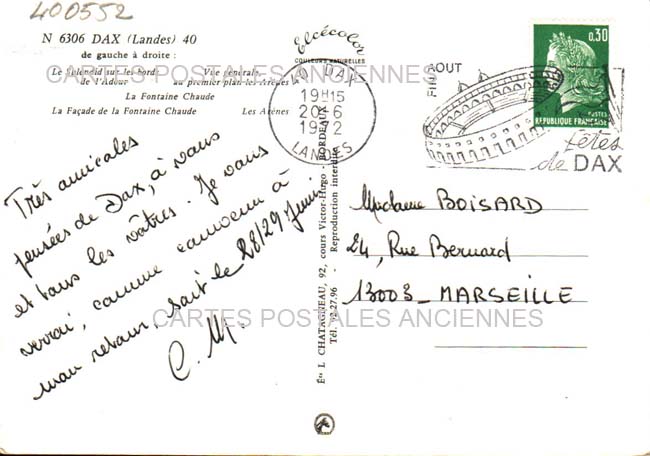 400552
N 6306 DAX (Landes) 40
de gauche à droite :
Le Splendid sur les bords de l'Adour
Vue générale, au premier plan les Arènes
La Fontaine Chaude
La Façade de la Fontaine Chaude Les Arènes
CARTES POSTALES ANCIENNES
Elcécolor
COULEURS NATURELLES
40 DAX
19H15
20-6
1972
LANDES
FIN AOUT
fêtes
de DAX
0,30
POSTES
REPUBLIQUE FRANÇAISE
Très amicales
pensées de Dax, à vous
et tous les vôtres. Je vous
verrai, comme convenu à
mon retour, soit le 28/29 Juin.
C. M.
Ets L. CHATAGNEAU, 92, cours Victor-Hugo - BORDEAUX
Tél. 92-27-96 Reproduction interdite
Madame BOISARD
24, Rue Bernard
13003 - MARSEILLE
CARTES POSTALES ANCIENNES